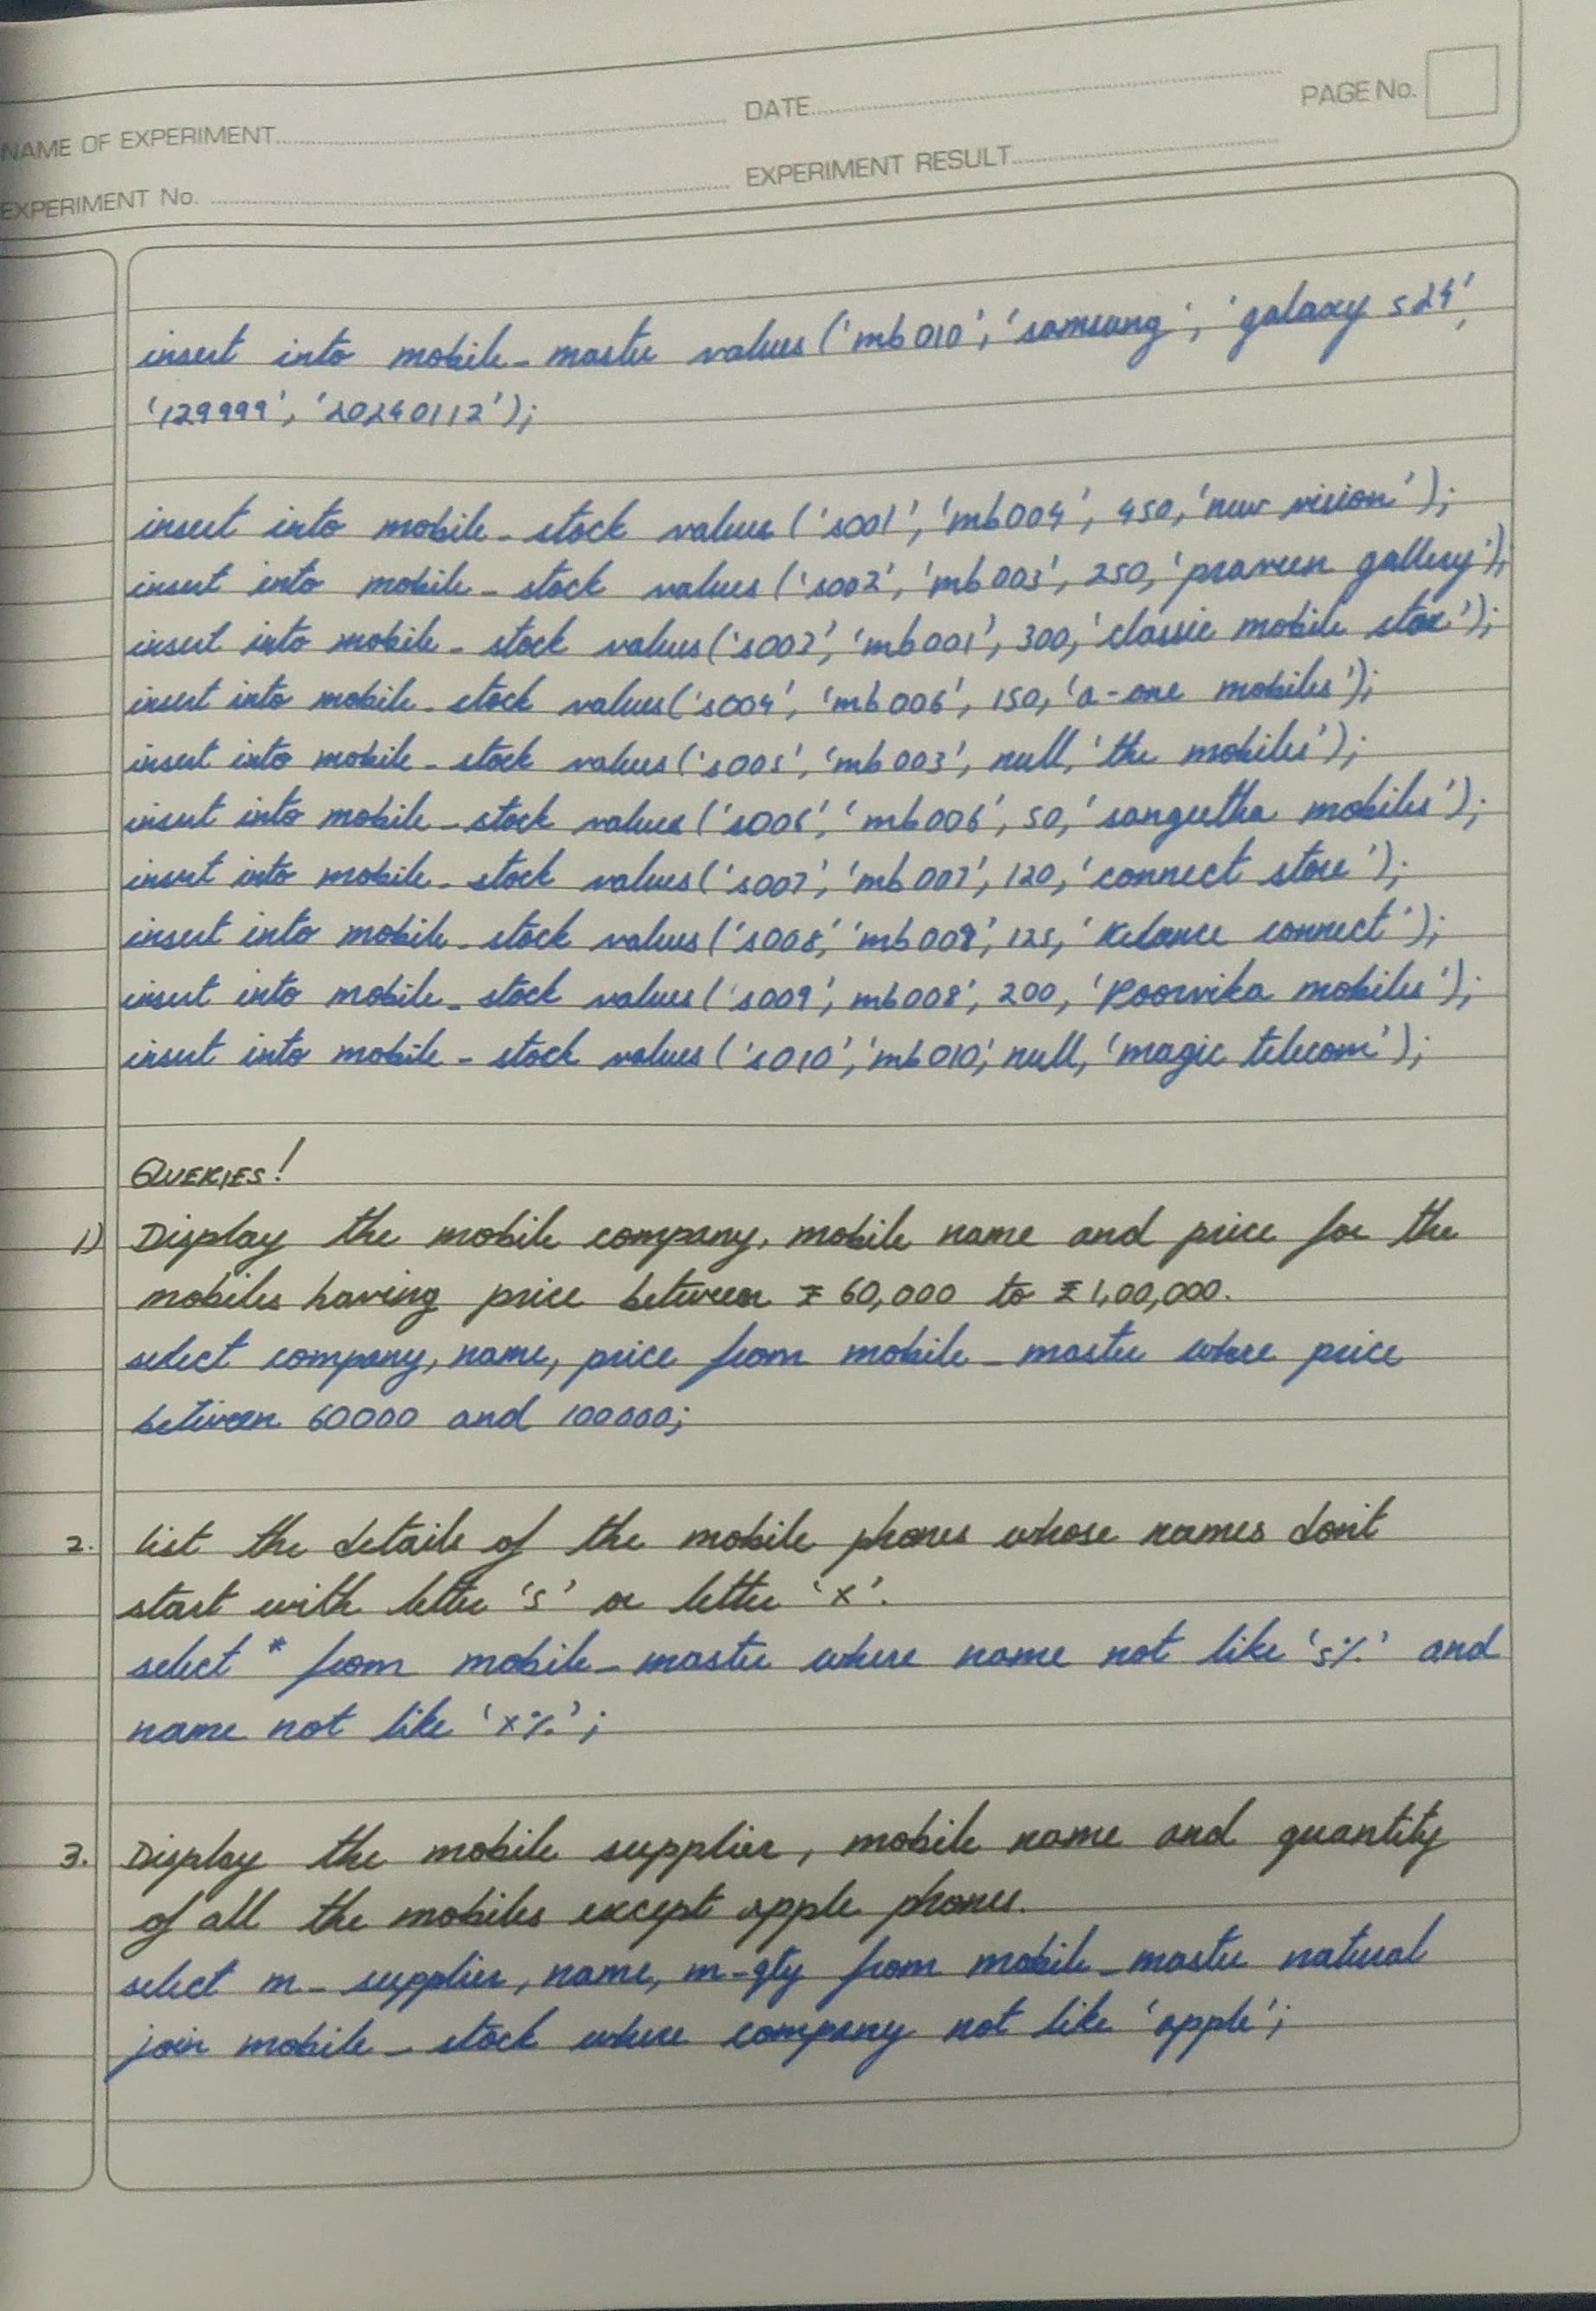 NAME OF EXPERIMENT
DATE
PAGE No.
EXPERIMENT No.
EXPERIMENT RESULT
insert into mobile_master values ('mb010', 'samsung', 'galaxy s24',
'129999', '20240112');
insert into mobile_stock values ('s001', 'mb004', 450, 'new vision');
insert into mobile_stock values ('s002', 'mb003', 250, 'praveen gallery');
insert into mobile_stock values('s003', 'mb001', 300, 'classic mobile store');
insert into mobile_stock values('s004', 'mb006', 150, 'a-one mobiles');
insert into mobile_stock values('s005', 'mb003', null, 'the mobiles');
insert into mobile_stock values('s006', 'mb006', 50, 'sangeetha mobiles');
insert into mobile_stock values('s007', 'mb007', 120, 'connect store');
insert into mobile_stock values('s008', 'mb009', 125, connect');
insert into mobile_stock values('s009', mb008', 200, 'Poorvika mobiles');
insert into mobile_stock values('s010', 'mb010', null, 'magic telecom');
QUERIES!
1) Display the mobile company, mobile name and price for the
mobiles having price between ₹ 60,000 to ₹ 1,00,000.
select company, name, price from mobile_master where price
between 60000 and 100000;
2. list the details of the mobile phones whose names don't
start with letter 's' or letter 'x'.
select * from mobile_master where name not like 's%' and
name not like 'x%';
3. Display the mobile supplier, mobile name and quantity
of all the mobiles except apple phones.
select m_supplier, name, m_qty from mobile_master natural
join mobile_stock where company not like 'apple';